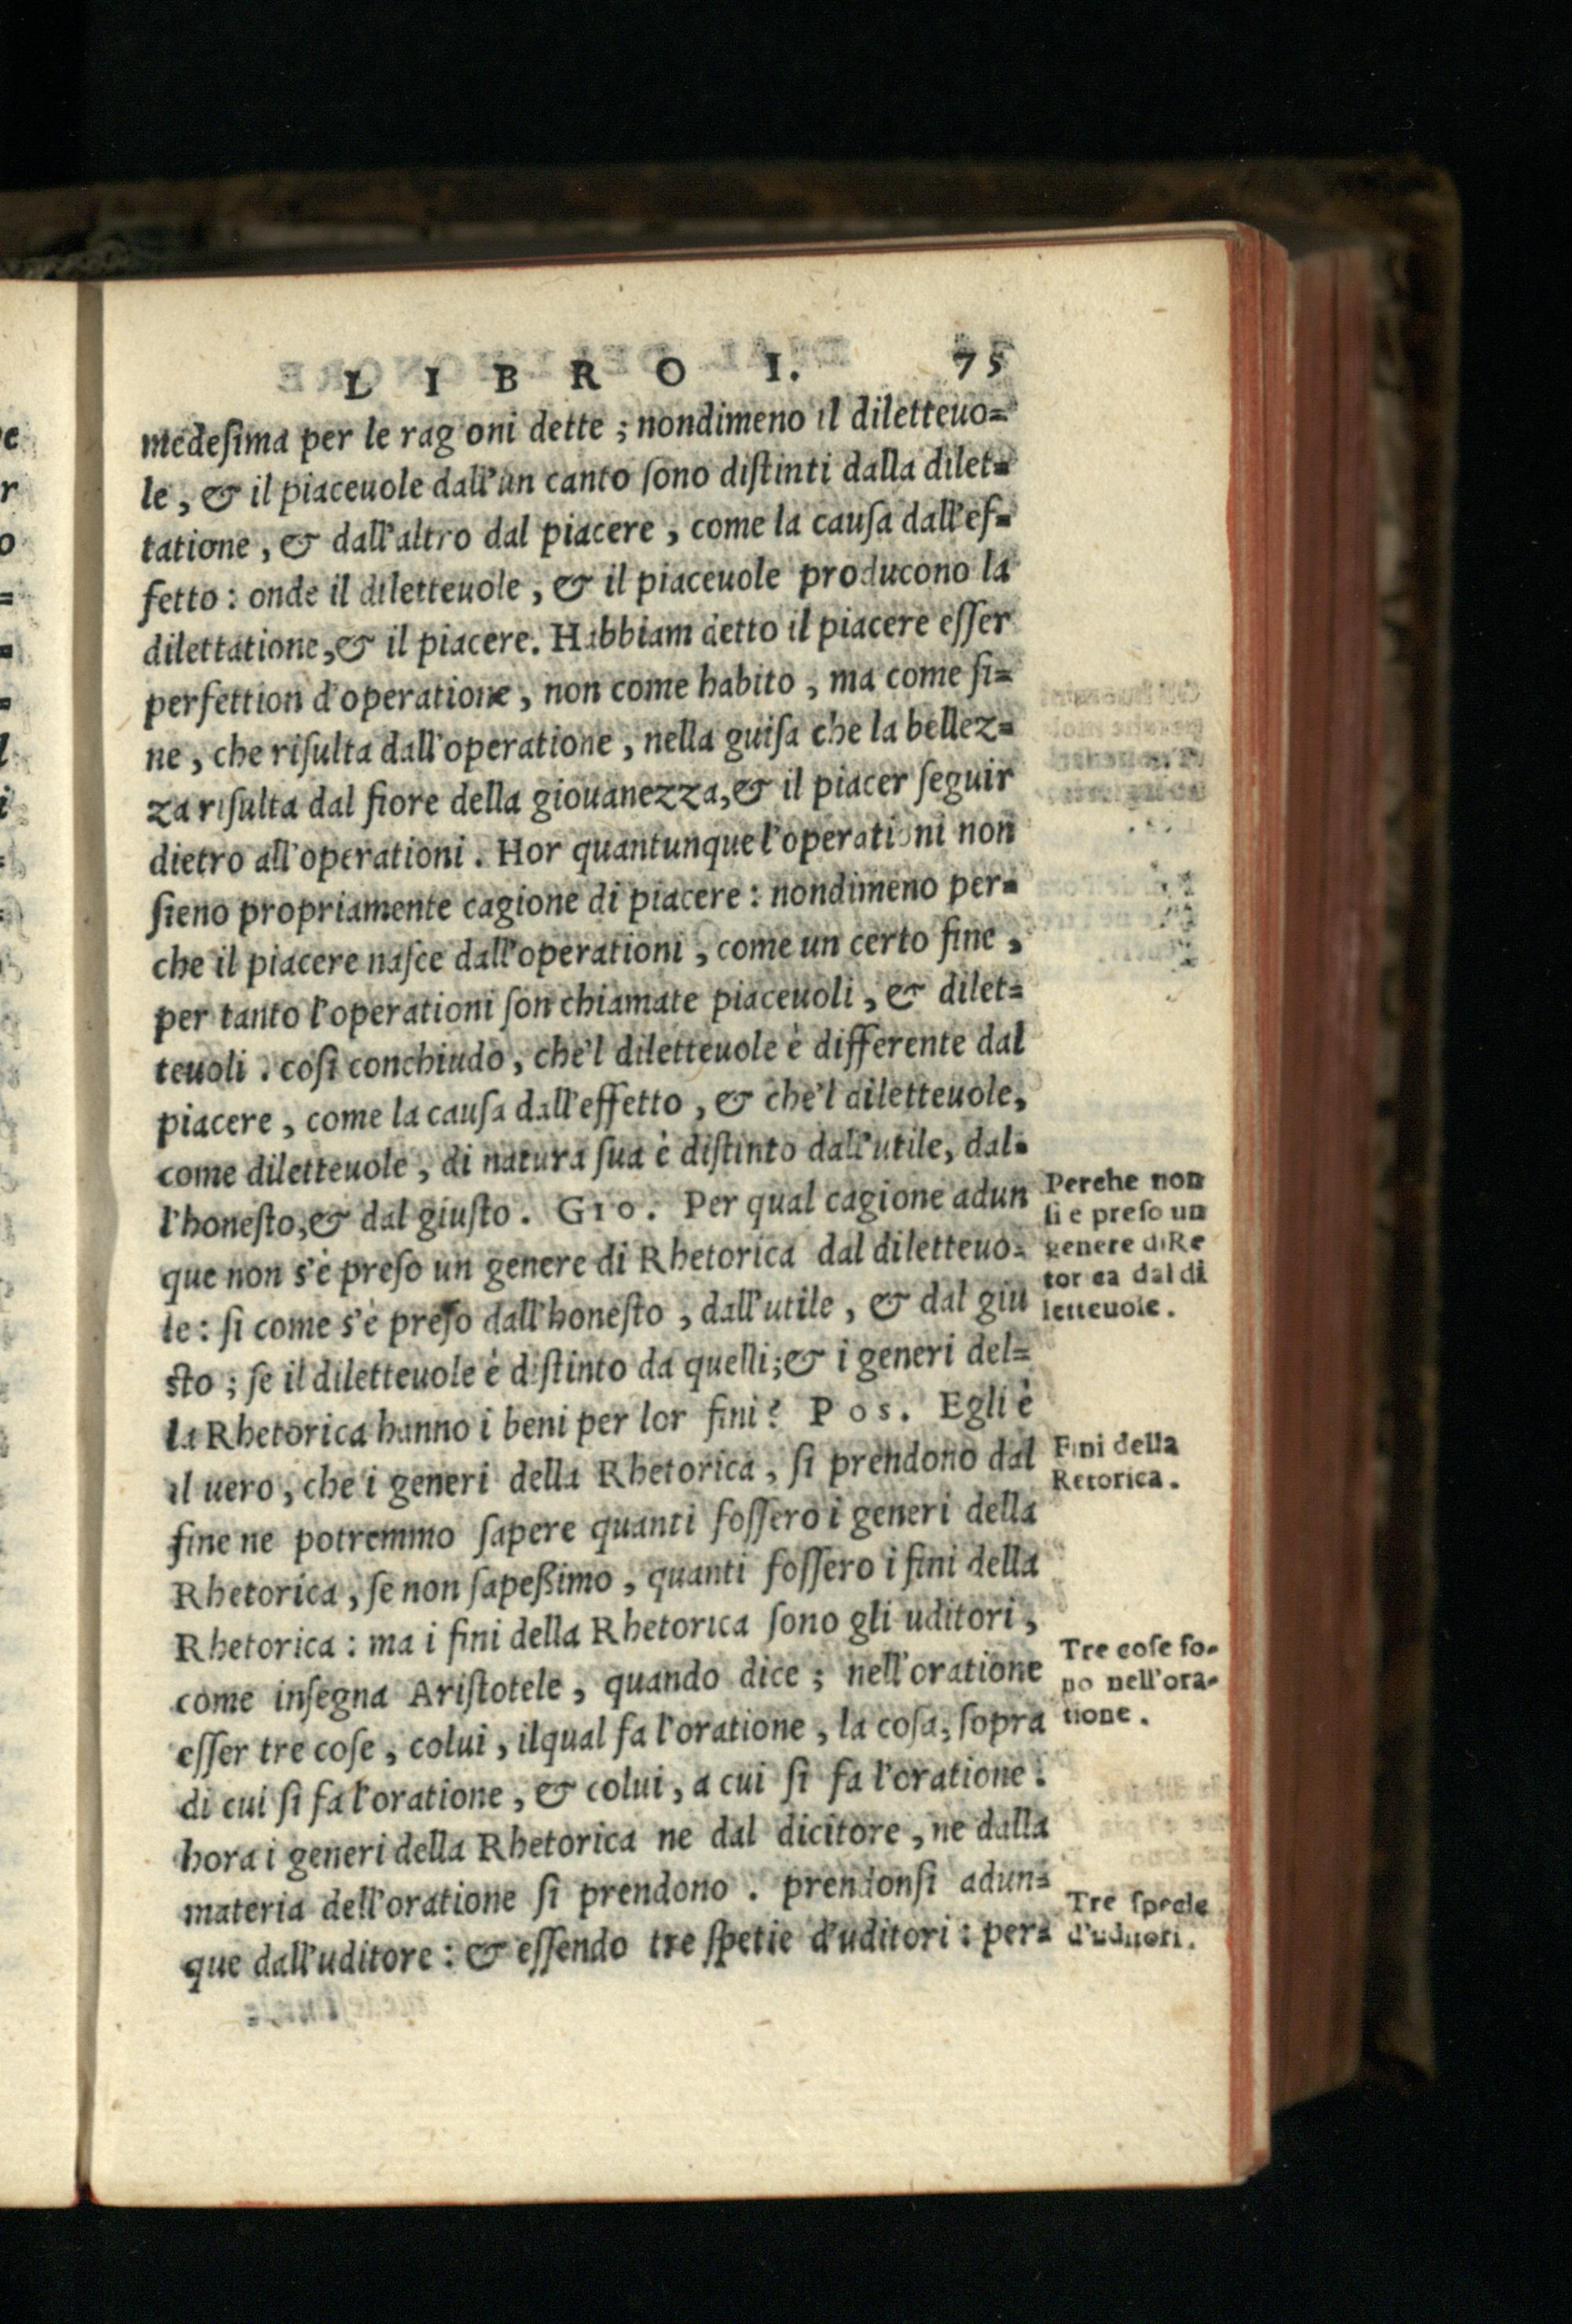 LIBRO I. 75
medeſima per le rag oni dette ; nondimeno il diletteuo=
le , & il piaceuole dall'un canto ſono diſtinti dalla dilet=
tatione , & dall'altro dal piacere , come la cauſa dall'ef=
fetto : onde il diletteuole , & il piaceuole producono la
dilettatione,& il piacere. Habbiam detto il piacere eſſer
perfettion d'operatione , non come habito , ma come fi=
ne , che riſulta dall'operatione , nella guiſa che la bellez=
za riſulta dal fiore della giouanezza,& il piacer ſeguir
dietro all'operationi . Hor quantunque l'operationi non
ſieno propriamente cagione di piacere : nondimeno per=
che il piacere naſce dall'operationi , come un certo fine ,
per tanto l'operationi ſon chiamate piaceuoli , & dilet=
teuoli . coſi conchiudo , che'l diletteuole è differente dal
piacere , come la cauſa dall'effetto , & che'l diletteuole,
come diletteuole , di natura ſua è diſtinto dall'utile, dal=
l'honeſto,& dal giuſto . GIO. Per qual cagione adun
que non s'è preſo un genere di Rhetorica dal diletteuo=
le : ſi come s'è preſo dall'honeſto , dall'utile , & dal giu
ſto ; ſe il diletteuole è diſtinto da quelli;& i generi del=
la Rhetorica hanno i beni per lor fini ? POS. Egli è
il uero , che i generi della Rhetorica , ſi prendono dal
fine ne potremmo ſapere quanti foſſero i generi della
Rhetorica , ſe non ſapeßimo , quanti foſſero i fini della
Rhetorica : ma i fini della Rhetorica ſono gli uditori ,
come inſegna Ariſtotele , quando dice ; nell'oratione
eſſer tre coſe , colui , ilqual fa l'oratione , la coſa, ſopra
di cui ſi fa l'oratione , & colui , a cui ſi fa l'oratione .
hora i generi della Rhetorica ne dal dicitore , ne dalla
materia dell'oratione ſi prendono . prendonſi adun=
que dall'uditore : & eſſendo tre ſpetie d'uditori : per=
Perche non
ſi e preſo un
genere di Re
tor ca dal di
letteuole .
Fini della
Retorica .
Tre coſe ſo-
no nell'ora-
tione .
Tre ſpecie
d'uditori.